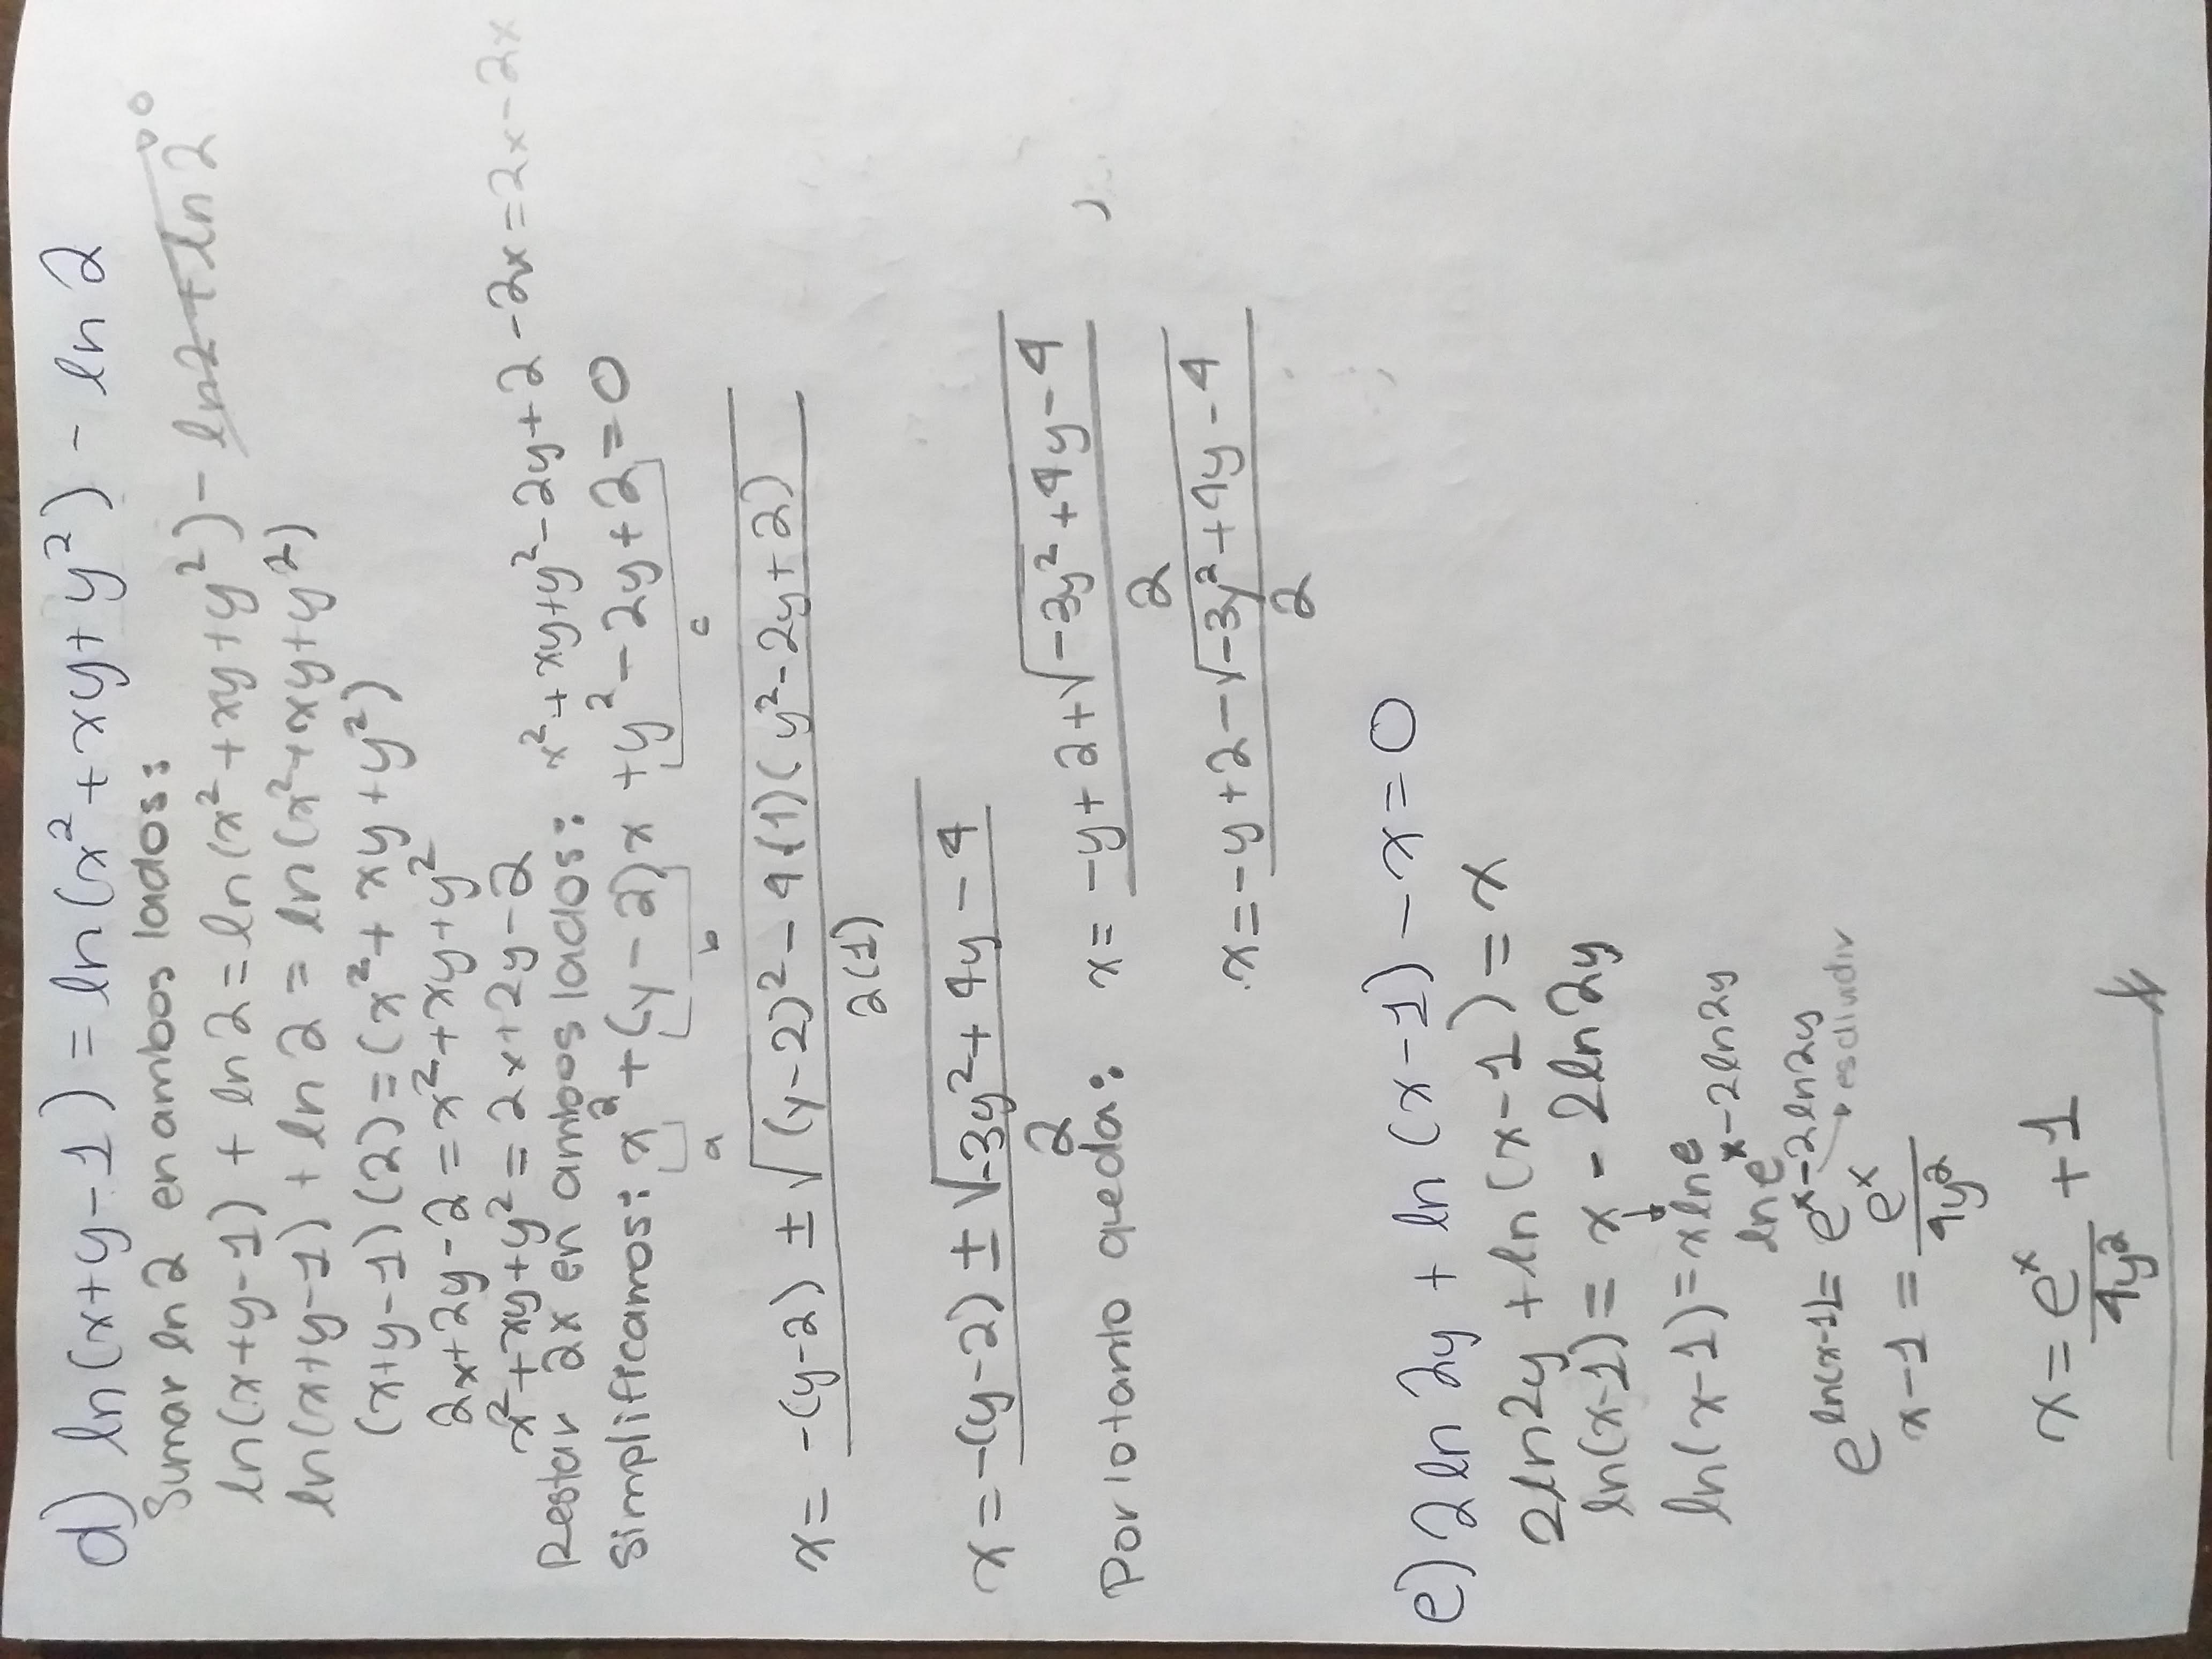 d) ln(x+y-1) = ln(x²+xy+y²) - ln 2
Sumar ln 2 en ambos lados:
ln(x+y-1) + ln 2 = ln(x²+xy+y²) - ln2 + ln 2 0
ln(x+y-1) + ln 2 = ln(x²+xy+y²)
(x+y-1)(2) = (x²+xy+y²)
2x+2y-2 = x²+xy+y²
x²+xy+y² = 2x+2y-2
Restar 2x en ambos lados: x²+xy+y²-2y+2-2x=2x-2x
Simplificamos: x²+(y-2)x+y²-2y+2=0
a b c
x = -(y-2) ± √(y-2)²-4(1)(y²-2y+2)
2(1)
x = -(y-2) ± √-3y²+4y-4
2
Por lo tanto queda: x = -y+2+√-3y²+4y-4
2
x = -y+2-√-3y²+4y-4
2
e) 2 ln 2y + ln(x-1) - x = 0
2ln2y + ln(x-1) = x
ln(x-1) = x - 2ln2y
ln(x-1) = x lne x-2ln2y
lne
e ln(x-1) = e x-2ln2y
es dividir
x-1 = eˣ
4y²
x = eˣ + 1
4y²